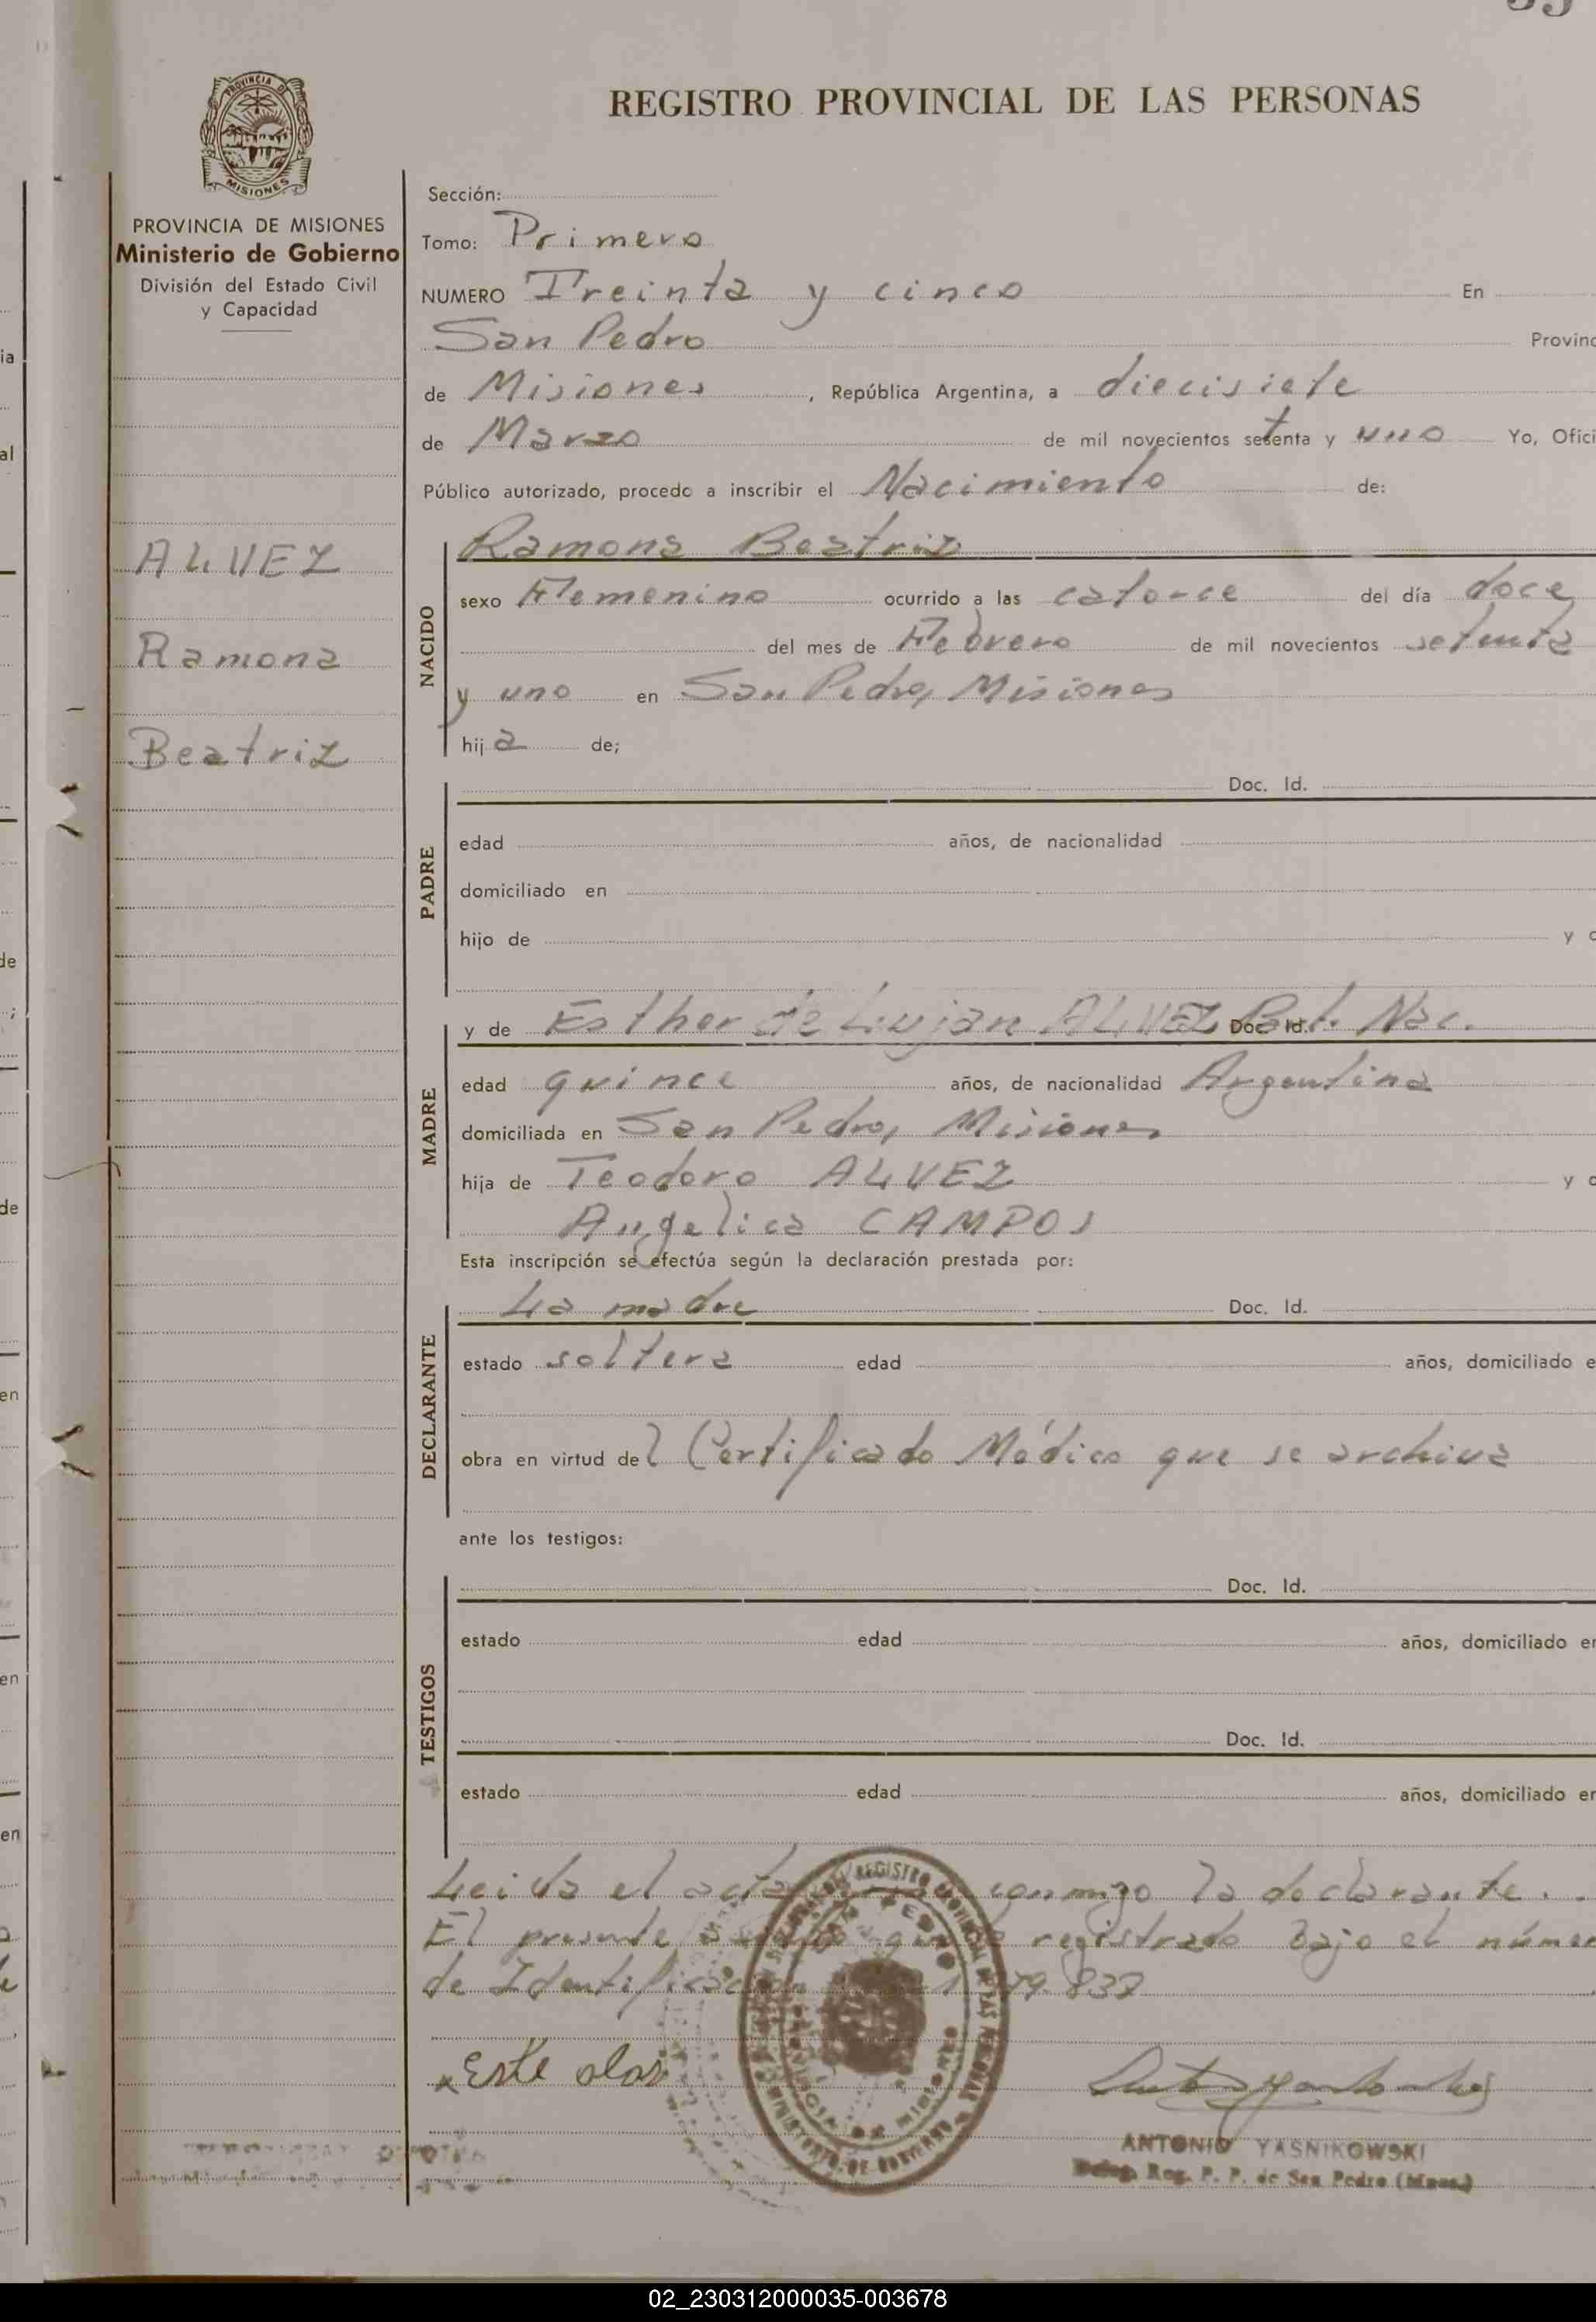 REGISTRO PROVINCIAL DE LAS PERSONAS
PROVINCIA DE MISIONES
Ministerio de Gobierno
División del Estado Civil
y Capacidad
ALVEZ
Ramona
Beatriz
Sección:
Tomo: Primero
NUMERO Treinta y cinco En
San Pedro Provinc
de Misiones , República Argentina, a diecisiete
de Marzo de mil novecientos setenta y uno Yo, Ofici
Público autorizado, procedo a inscribir el Nacimiento de:
NACIDO
Ramona Beatriz
sexo Femenino ocurrido a las catorce del día doce
del mes de Febrero de mil novecientos setenta
y uno en San Pedro, Misiones
hija de;
PADRE
Doc. Id.
edad años, de nacionalidad
domiciliado en
hijo de y d
MADRE
y de Esther de Lujan ALVEZ Doc. Id. Part. Nac.
edad quince años, de nacionalidad Argentina
domiciliada en San Pedro, Misiones
hija de Teodoro ALVEZ y d
Angelica CAMPOS
Esta inscripción se efectúa según la declaración prestada por:
DECLARANTE
La madre Doc. Id.
estado soltera edad años, domiciliado e
obra en virtud del Certificado Médico que se archiva
ante los testigos:
TESTIGOS
Doc. Id.
estado edad años, domiciliado en
Doc. Id.
estado edad años, domiciliado en
Leida el acta conmigo la declarante.
El presente registrado bajo el númer
de Identificación 79.837
ANTONIO YASNIKOWSKI
Deleg. Reg. P. P. de San Pedro (Mnes.)
02_230312000035-003678